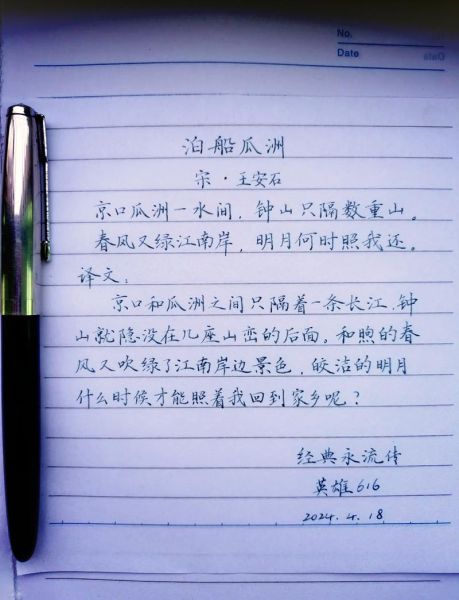 No.
Date
泊船瓜洲
宗·王安石
京口瓜洲一水间,钟山只隔数重山。
春风又绿江南岸,明月何时照我还。
译文:
京口和瓜洲之间只隔着一条长江,钟
山就隐没在几座山峦的后面。和煦的春
风又吹绿了江南岸边景色,皎洁的明月
什么时候才能照着我回到家乡呢?
经典永流传
英雄616
2024.4.18